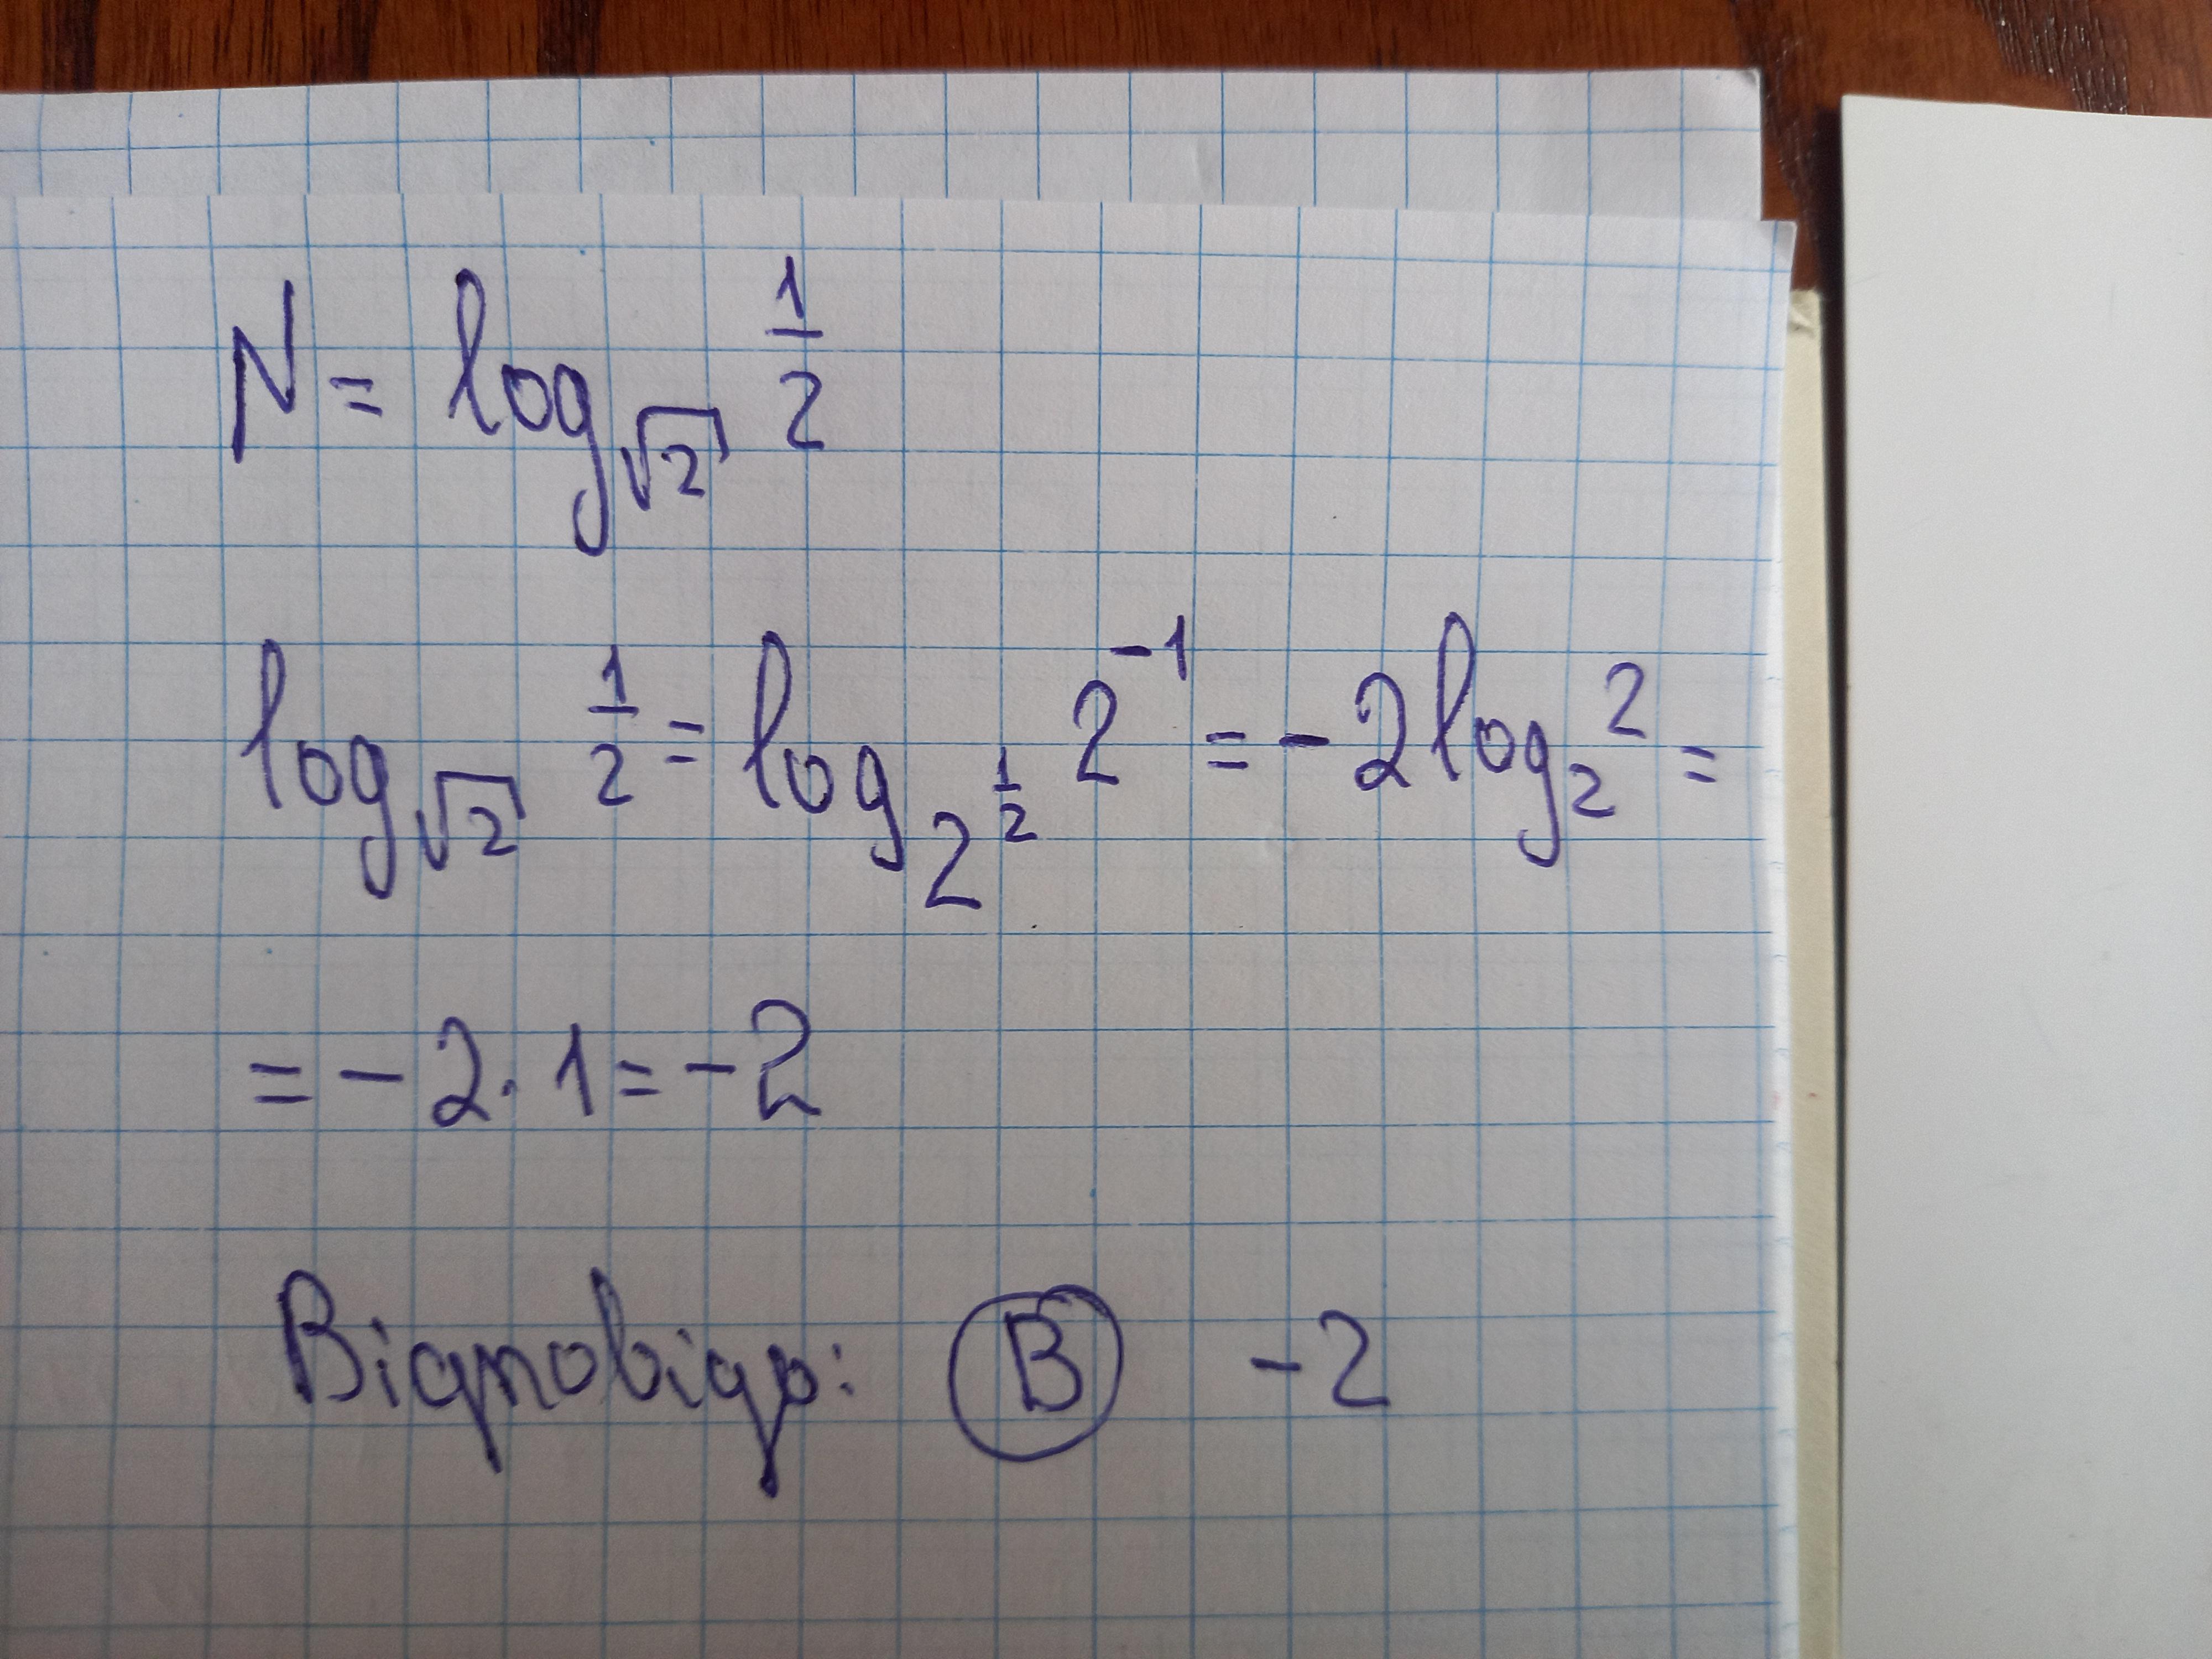 N = log_{√2} 1/2
log_{√2} 1/2 = log_{2^{1/2}} 2^{-1} = -2 log_2 2 =
= -2 · 1 = -2
Відповідь: В -2